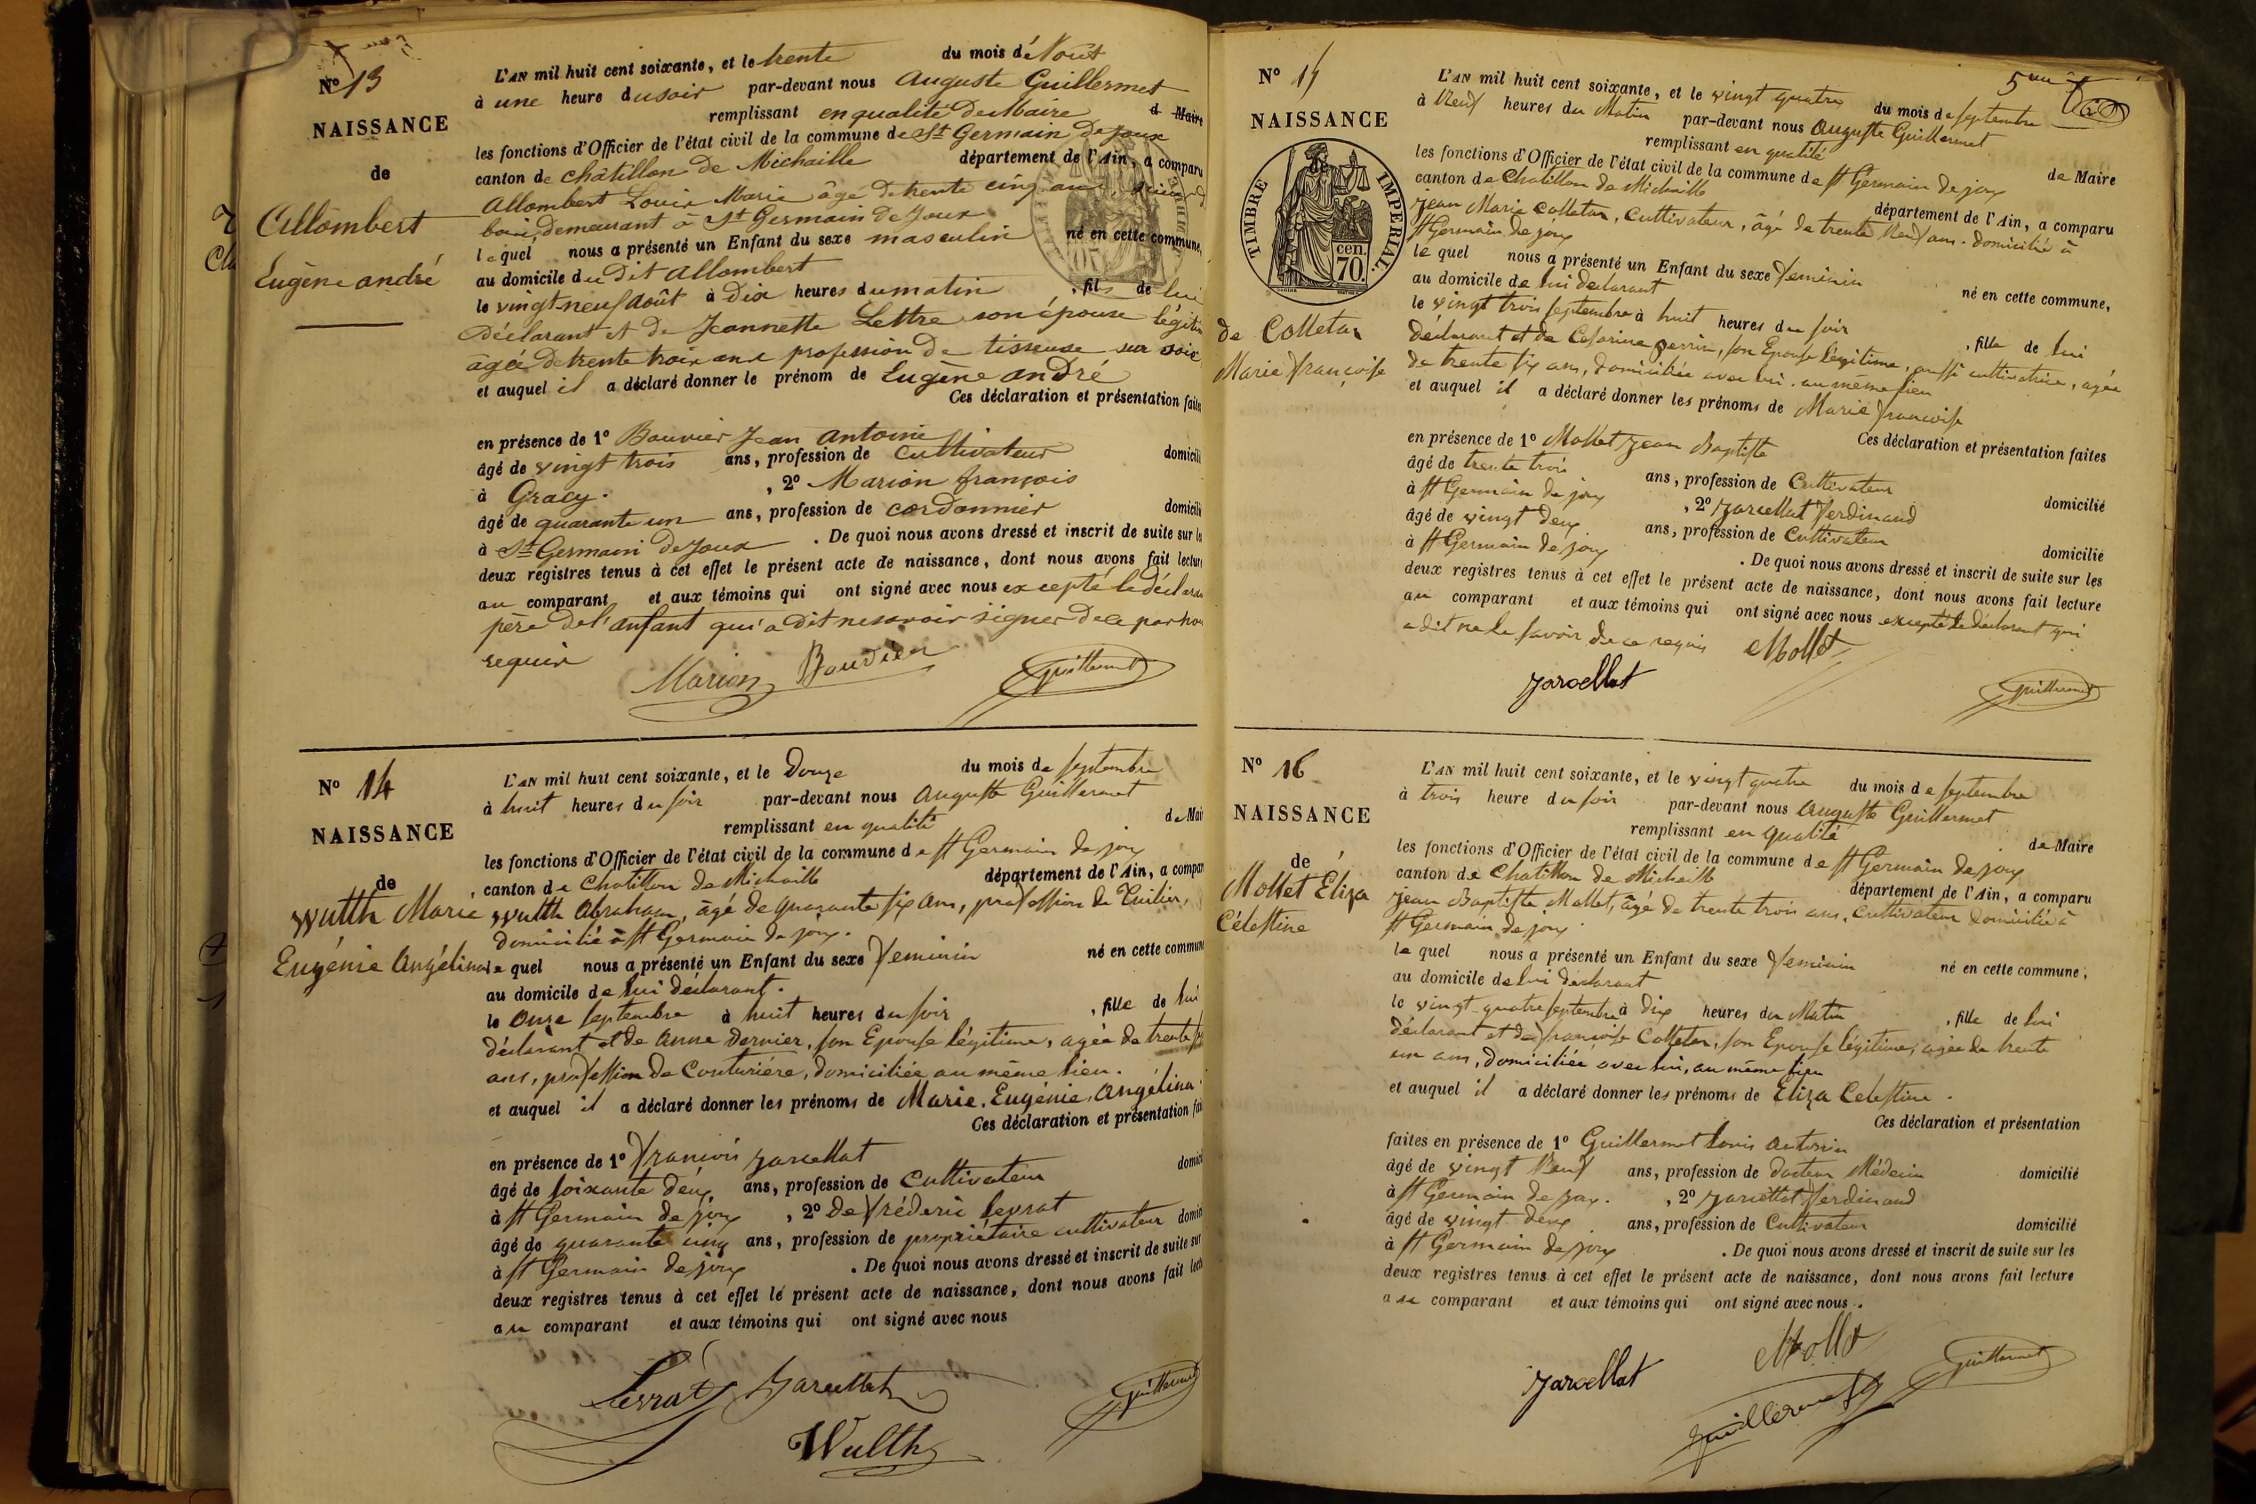 5me
Nº 13
NAISSANCE
de
Allombert
Eugène andré
L'AN mil huit cent soixante, et le trente du mois d'Août
à une heure du soir par-devant nous Auguste Guillermet
remplissant en qualité de Maire d Maire
les fonctions d'Officier de l'état civil de la commune de St Germain de Joux
canton de Chatillon de Michaille département de l'Ain, a comparu
Allombert Louis Marie âgé de trente cinq ans
demeurant à St Germain de Joux
lequel nous a présenté un Enfant du sexe masculin né en cette commune,
au domicile du Dit Allombert
le vingt-neuf août à Dix heures du matin , fils de lui
Déclarant et de Jeannette Lettre son épouse légitime
âgée de trente trois ans profession de tisseuse sur soie
et auquel il a déclaré donner le prénom de Eugène André
Ces déclaration et présentation faites
en présence de 1º Bouvier Jean Antoine
âgé de vingt trois ans, profession de Cultivateur domicilié
à Gracy. , 2º Marion françois
âgé de quarante un ans, profession de cordonnier domicilié
à St Germain de Joux . De quoi nous avons dressé et inscrit de suite sur les
deux registres tenus à cet effet le présent acte de naissance, dont nous avons fait lecture
au comparant et aux témoins qui ont signé avec nous excepté le déclarant
père de l'enfant qui a dit ne savoir signer de ce par nous
requis
Marion Bouvier Guillermet
Nº 14
NAISSANCE
de
Wulth Marie
Eugénie Angélina
L'AN mil huit cent soixante, et le Douze du mois de septembre
à huit heures du soir par-devant nous Auguste Guillermet
remplissant en qualité de Maire
les fonctions d'Officier de l'état civil de la commune de St Germain de joux
canton de Chatillon de Michaille département de l'Ain, a comparu
Wulth Abraham, âgé de quarante six ans, profession de Tuilier,
domicilié à St Germain de joux.
le quel nous a présenté un Enfant du sexe feminin né en cette commune
au domicile de lui déclarant.
le onze septembre à huit heures du soir , fille de lui
déclarant et de Anne Dernier, son Epouse légitime, agée de trente
ans, profession de Couturiére, domiciliée au même lieu.
et auquel il a déclaré donner les prénoms de Marie, Eugénie, Angélina.
Ces déclaration et présentation faites
en présence de 1º François Jarcellat
âgé de soixante deux ans, profession de Cultivateur domicilié
à St Germain de joux , 2º De Fréderic Levrat
âgé de quarante cinq ans, profession de propriétaire cultivateur domicilié
à St Germain de joux . De quoi nous avons dressé et inscrit de suite sur
deux registres tenus à cet effet le présent acte de naissance, dont nous avons fait lecture
au comparant et aux témoins qui ont signé avec nous
Levrat Jarcellat Guillermet
Wulth
5me
Nº 15
NAISSANCE
TIMBRE IMPERIAL.
cen. 70.
de Colletaz
Marie françoise
L'AN mil huit cent soixante, et le vingt quatre du mois de septembre
à Neuf heures du Matin par-devant nous Auguste Guillermet
remplissant en qualité de Maire
les fonctions d'Officier de l'état civil de la commune de St Germain de joux
canton de Chatillon de Michaille département de l'Ain, a comparu
Jean Marie Colletaz, Cultivateur, âgé de trente Neuf ans. domicilié à
St Germain de joux
le quel nous a présenté un Enfant du sexe feminin né en cette commune,
au domicile de lui déclarant
le vingt trois septembre à huit heures du soir , fille de lui
déclarant et de Césarine perrin, son Epouse légitime, aussi cultivatrice, agée
de trente six ans, domiciliée avec lui. au même lieu
et auquel il a déclaré donner les prénoms de Marie françoise
Ces déclaration et présentation faites
en présence de 1º Mollet Jean Baptiste
âgé de trente trois ans, profession de Cultivateur domicilié
à St Germain de joux , 2º Jarcellat Ferdinand
âgé de vingt deux ans, profession de Cultivateur domicilié
à St Germain de joux . De quoi nous avons dressé et inscrit de suite sur les
deux registres tenus à cet effet le présent acte de naissance, dont nous avons fait lecture
au comparant et aux témoins qui ont signé avec nous excepté le déclarant qui
a dit ne le savoir de ce requis
Mollet
Jarcellat Guillermet
Nº 16
NAISSANCE
de
Mollet Eliza
Célestine
L'AN mil huit cent soixante, et le vingt quatre du mois de septembre
à trois heure du soir par-devant nous Auguste Guillermet
remplissant en qualité de Maire
les fonctions d'Officier de l'état civil de la commune de St Germain de joux
canton de Chatillon de Michaille département de l'Ain, a comparu
Jean Baptiste Mollet, âgé de trente trois ans, Cultivateur domicilié à
St Germain de joux
le quel nous a présenté un Enfant du sexe feminin né en cette commune,
au domicile de lui déclarant
le vingt-quatre septembre à dix heures du Matin , fille de lui
déclarant et de françoise Colletaz, son Epouse légitime, agée de trente
un ans, domiciliée avec lui, au même lieu
et auquel il a déclaré donner les prénoms de Eliza Celestine.
Ces déclaration et présentation
faites en présence de 1º Guillermet Louis Antonin
âgé de vingt Neuf ans, profession de docteur Médecin domicilié
à St Germain de joux. , 2º Jarcellat Ferdinand
âgé de vingt deux ans, profession de Cultivateur domicilié
à St Germain de joux . De quoi nous avons dressé et inscrit de suite sur les
deux registres tenus à cet effet le présent acte de naissance, dont nous avons fait lecture
au comparant et aux témoins qui ont signé avec nous.
Mollet
Jarcellat Guillermet
Guillermet